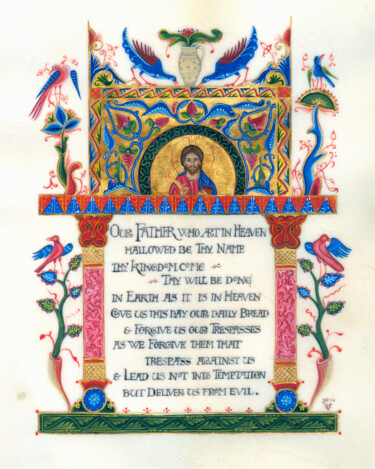 Our Father who art in Heaven
hallowed be Thy Name
Thy Kingdom come
Thy will be done
in Earth as it is in Heaven
Give us this day our daily Bread
& Forgive us our Trespasses
as we Forgive them that
trespass against us
& Lead us not into Temptation
but Deliver us from evil.